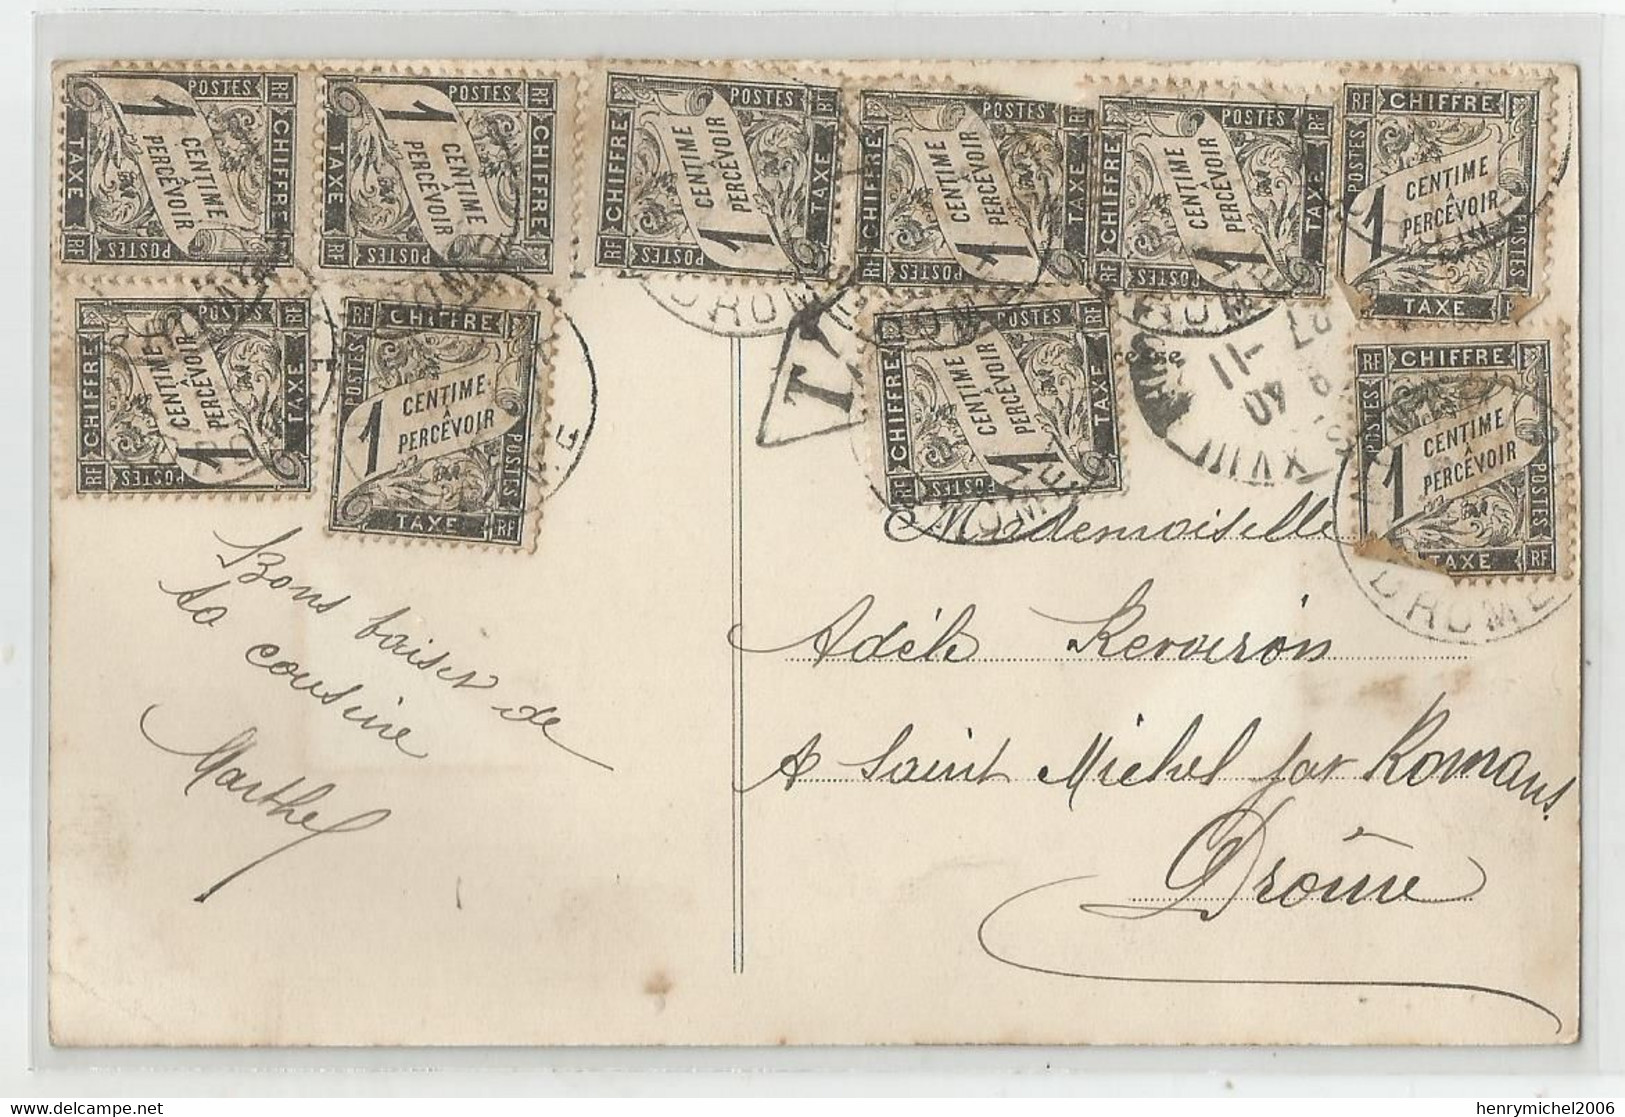 POSTES RF CHIFFRE TAXE 1 CENTIME À PERCEVOIR RF POSTES
POSTES RF CHIFFRE TAXE 1 CENTIME À PERCEVOIR RF POSTES
POSTES CHIFFRE TAXE 1 CENTIME À PERCEVOIR RF POSTES
POSTES CHIFFRE TAXE 1 CENTIME À PERCEVOIR RF POSTES
POSTES RF CHIFFRE TAXE 1 CENTIME À PERCEVOIR RF POSTES
RF CHIFFRE POSTES 1 CENTIME À PERCEVOIR POSTES TAXE
POSTES CHIFFRE TAXE 1 CENTIME À PERCEVOIR RF
CHIFFRE POSTES 1 CENTIME À PERCEVOIR POSTES TAXE RF
POSTES CHIFFRE TAXE 1 CENTIME À PERCEVOIR RF
RF CHIFFRE POSTES 1 CENTIME À PERCEVOIR POSTES TAXE RF
DROME
T
DROME
XVIII 40
11
DROME
Bons baiser de
ta cousine
Marthe
Mademoiselle
Adèle Kerveron
A Saint Michel par Romans
Drôme
henrymichel2006